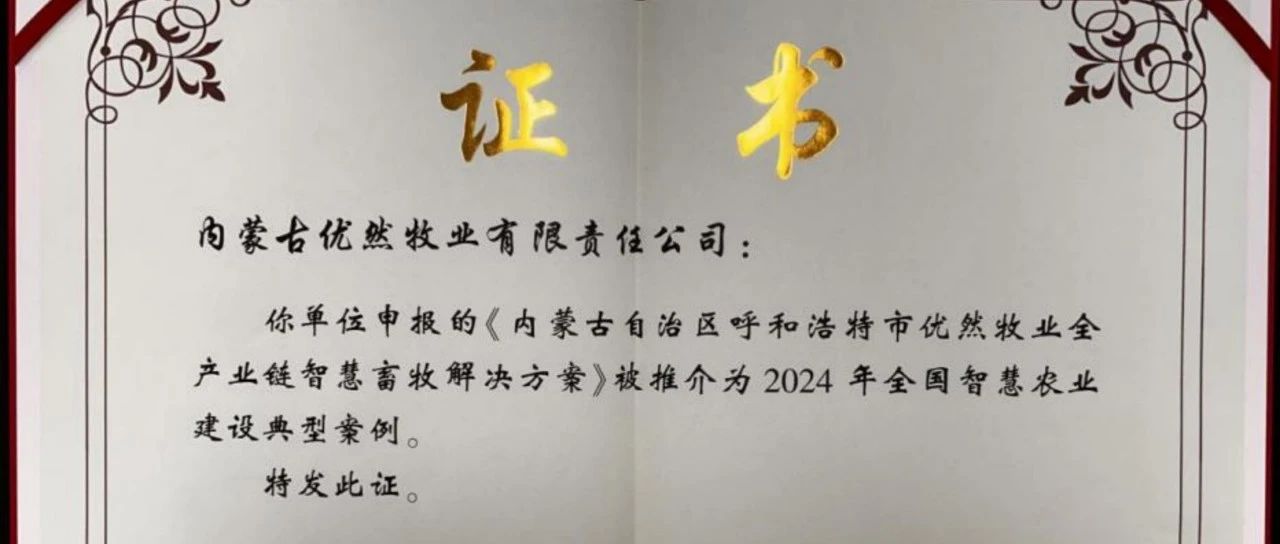 证 书
内蒙古优然牧业有限责任公司：
你单位申报的《内蒙古自治区呼和浩特市优然牧业全
产业链智慧畜牧解决方案》被推介为 2024 年全国智慧农业
建设典型案例。
特发此证。